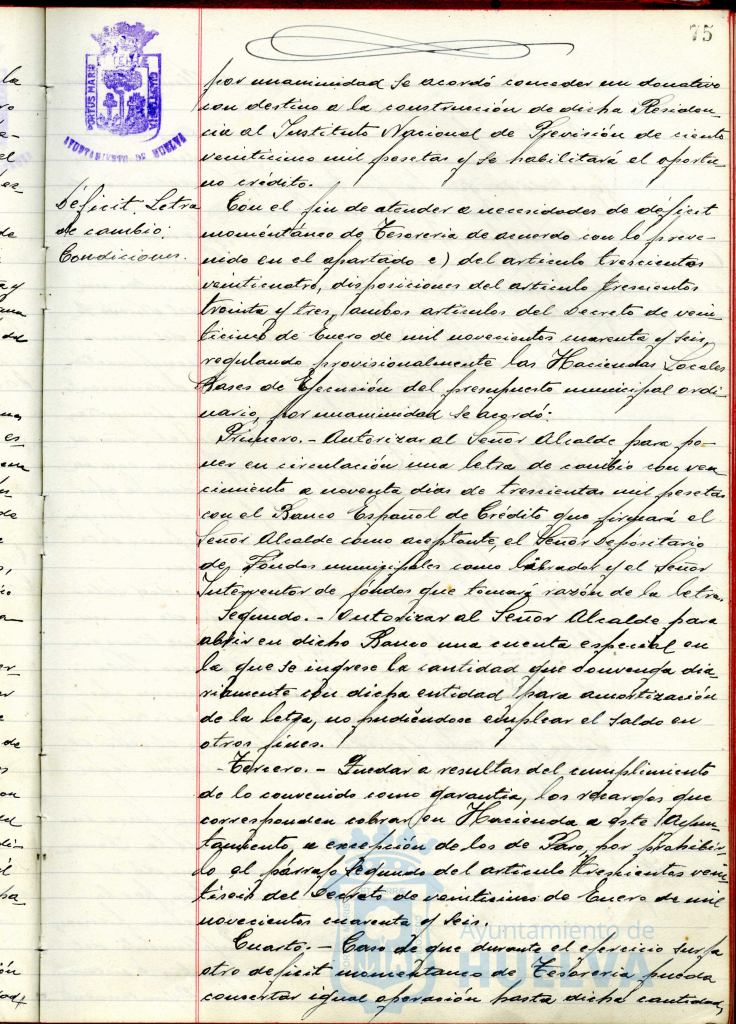 75
PORTUS MARIS ET TERRE CUSTODIA
AYUNTAMIENTO DE HUELVA
por unanimidad se acordó conceder un donativo
con destino a la construcción de dicha Residen-
cia al Instituto Nacional de Previsión de ciento
veinticinco mil pesetas y se habilitará el oportu-
no crédito.
Déficit. Letra
de cambio.
Condiciones.
Con el fin de atender a necesidades de déficit
momentáneo de Tesorería de acuerdo con lo preve-
nido en el apartado c) del artículo trescientos
veinticuatro, disposiciones del artículo trescientos
treinta y tres, ambos artículos del Decreto de vein-
ticinco de Enero de mil novecientos cuarenta y seis,
regulando provisionalmente las Haciendas Locales
Bases de Ejecución del presupuesto municipal ordi-
nario, por unanimidad se acordó:
Primero.- Autorizar al Señor Alcalde para po-
ner en circulación una letra de cambio con ven-
cimiento a noventa días de trescientas mil pesetas
con el Banco Español de Crédito que firmará el
Señor Alcalde como aceptante, el Señor Depositario
de Fondos municipales como librador y el Señor
Interventor de fondos que tomará razón de la letra.
Segundo.- Autorizar al Señor Alcalde para
abrir en dicho Banco una cuenta especial en
la que se ingrese la cantidad que convenga dia-
riamente con dicha entidad para amortización
de la letra, no pudiéndose emplear el saldo en
otros fines.
Tercero.- Quedar a resultas del cumplimiento
de lo convenido como garantía, los recargos que
corresponden cobrar en Hacienda a este Ayun-
tamiento, a excepción de los de Paro, por prohibir-
lo el párrafo segundo del artículo trescientos vein-
tiseis del Decreto de veinticinco de Enero de mil
novecientos cuarenta y seis.
Cuarto.- Caso de que durante el ejercicio surja
otro déficit momentáneo de Tesorería pueda
concertar igual operación hasta dicha cantidad,
Ayuntamiento de
HUELVA